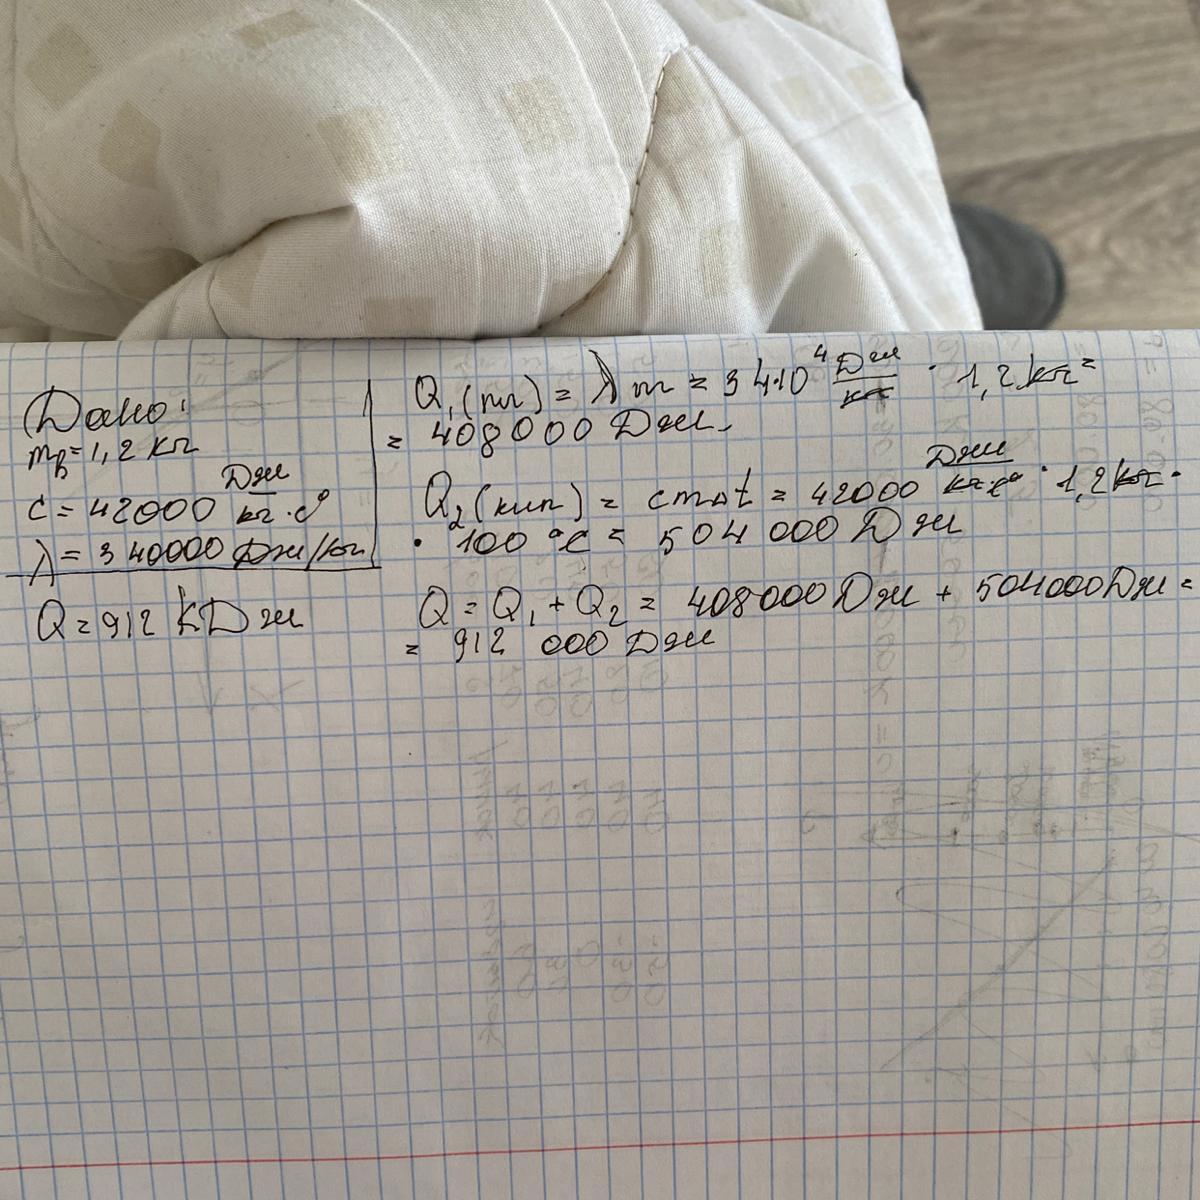 Дано:
mв = 1,2 кг
c = 42000 Дж/кг·c°
λ = 340000 Дж/кг
Q = 912 кДж
Q₁(пл) = λm = 34·10⁴ Дж/кг · 1,2 кг =
= 408000 Дж.
Q₂(кип) = cmΔt = 42000 Дж/кг·c° · 1,2 кг ·
· 100 °C = 504 000 Дж
Q = Q₁ + Q₂ = 408000 Дж + 504000 Дж =
= 912 000 Дж